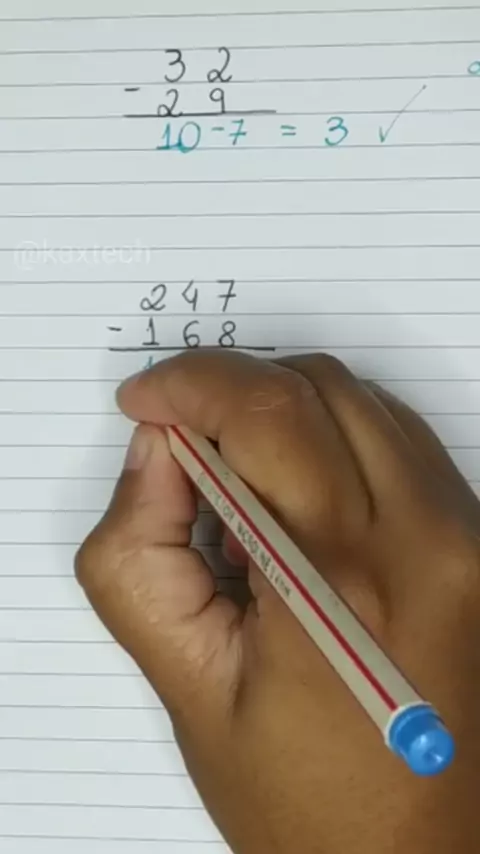 32
- 29
10 - 7 = 3 ✓
@kaxtech
247
- 168
1